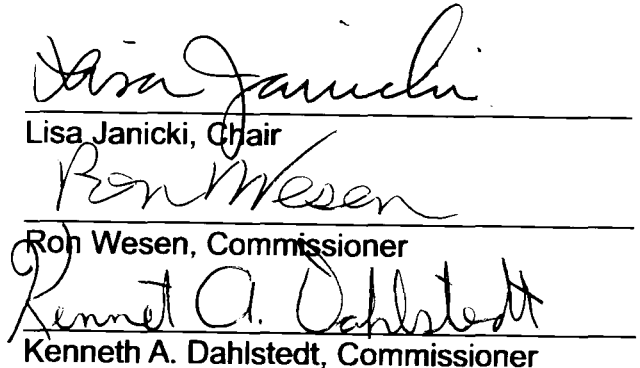 Lisa Janicki
Lisa Janicki, Chair
Ron Wesen
Ron Wesen, Commissioner
Kennet A. Dahlstedt
Kenneth A. Dahlstedt, Commissioner